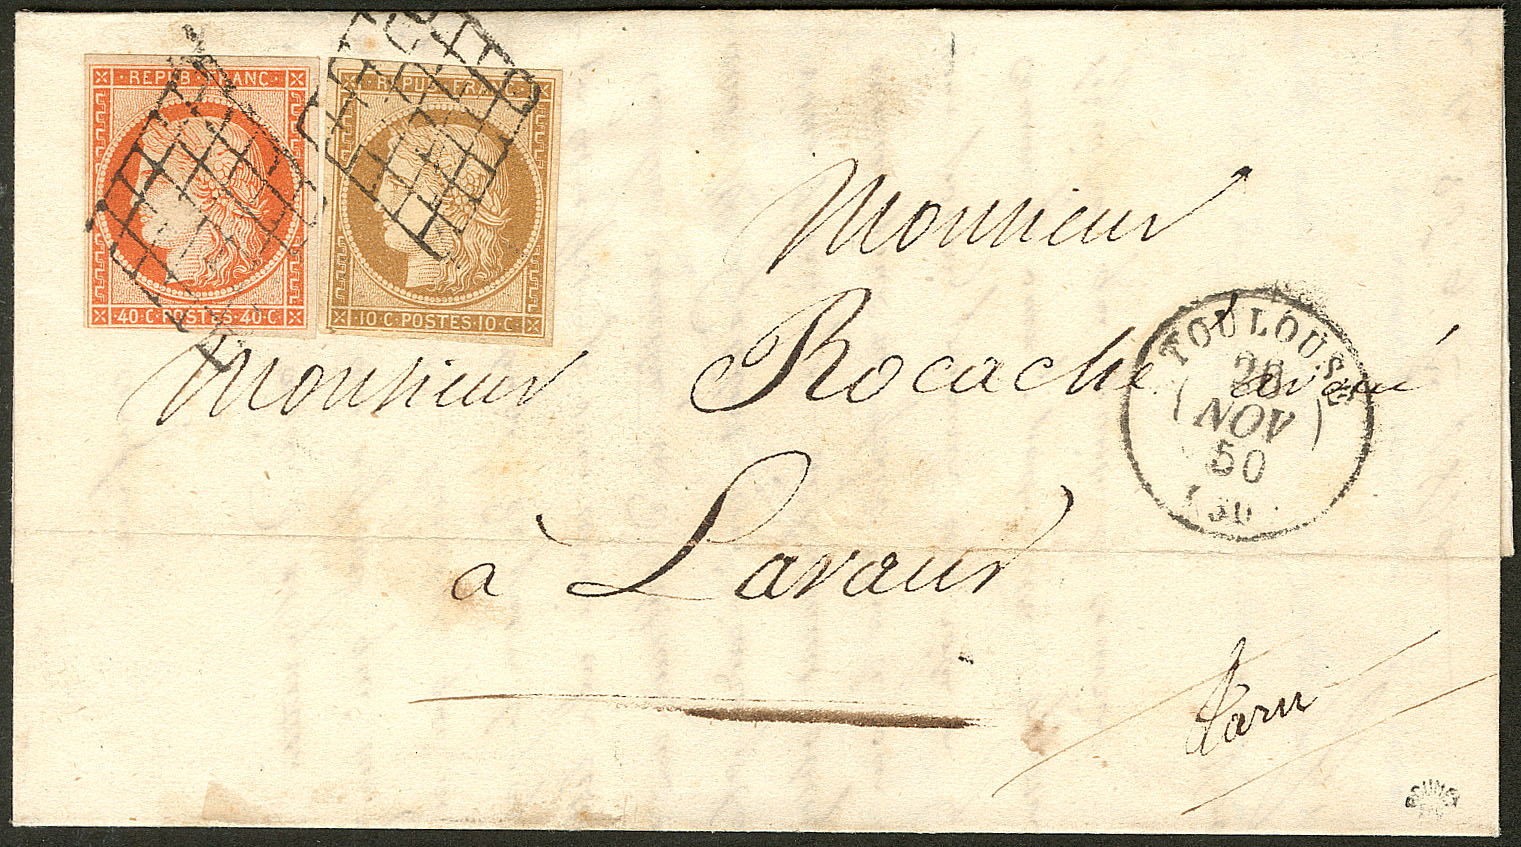 REPUB·FRANC·
40·C·POSTES·40·C·
REPUB·FRANC·
10·C·POSTES·10·C·
Monsieur
Monsieur Rocaché avoué
à Lavaur
Tarn
TOULOUSE
NOV
50